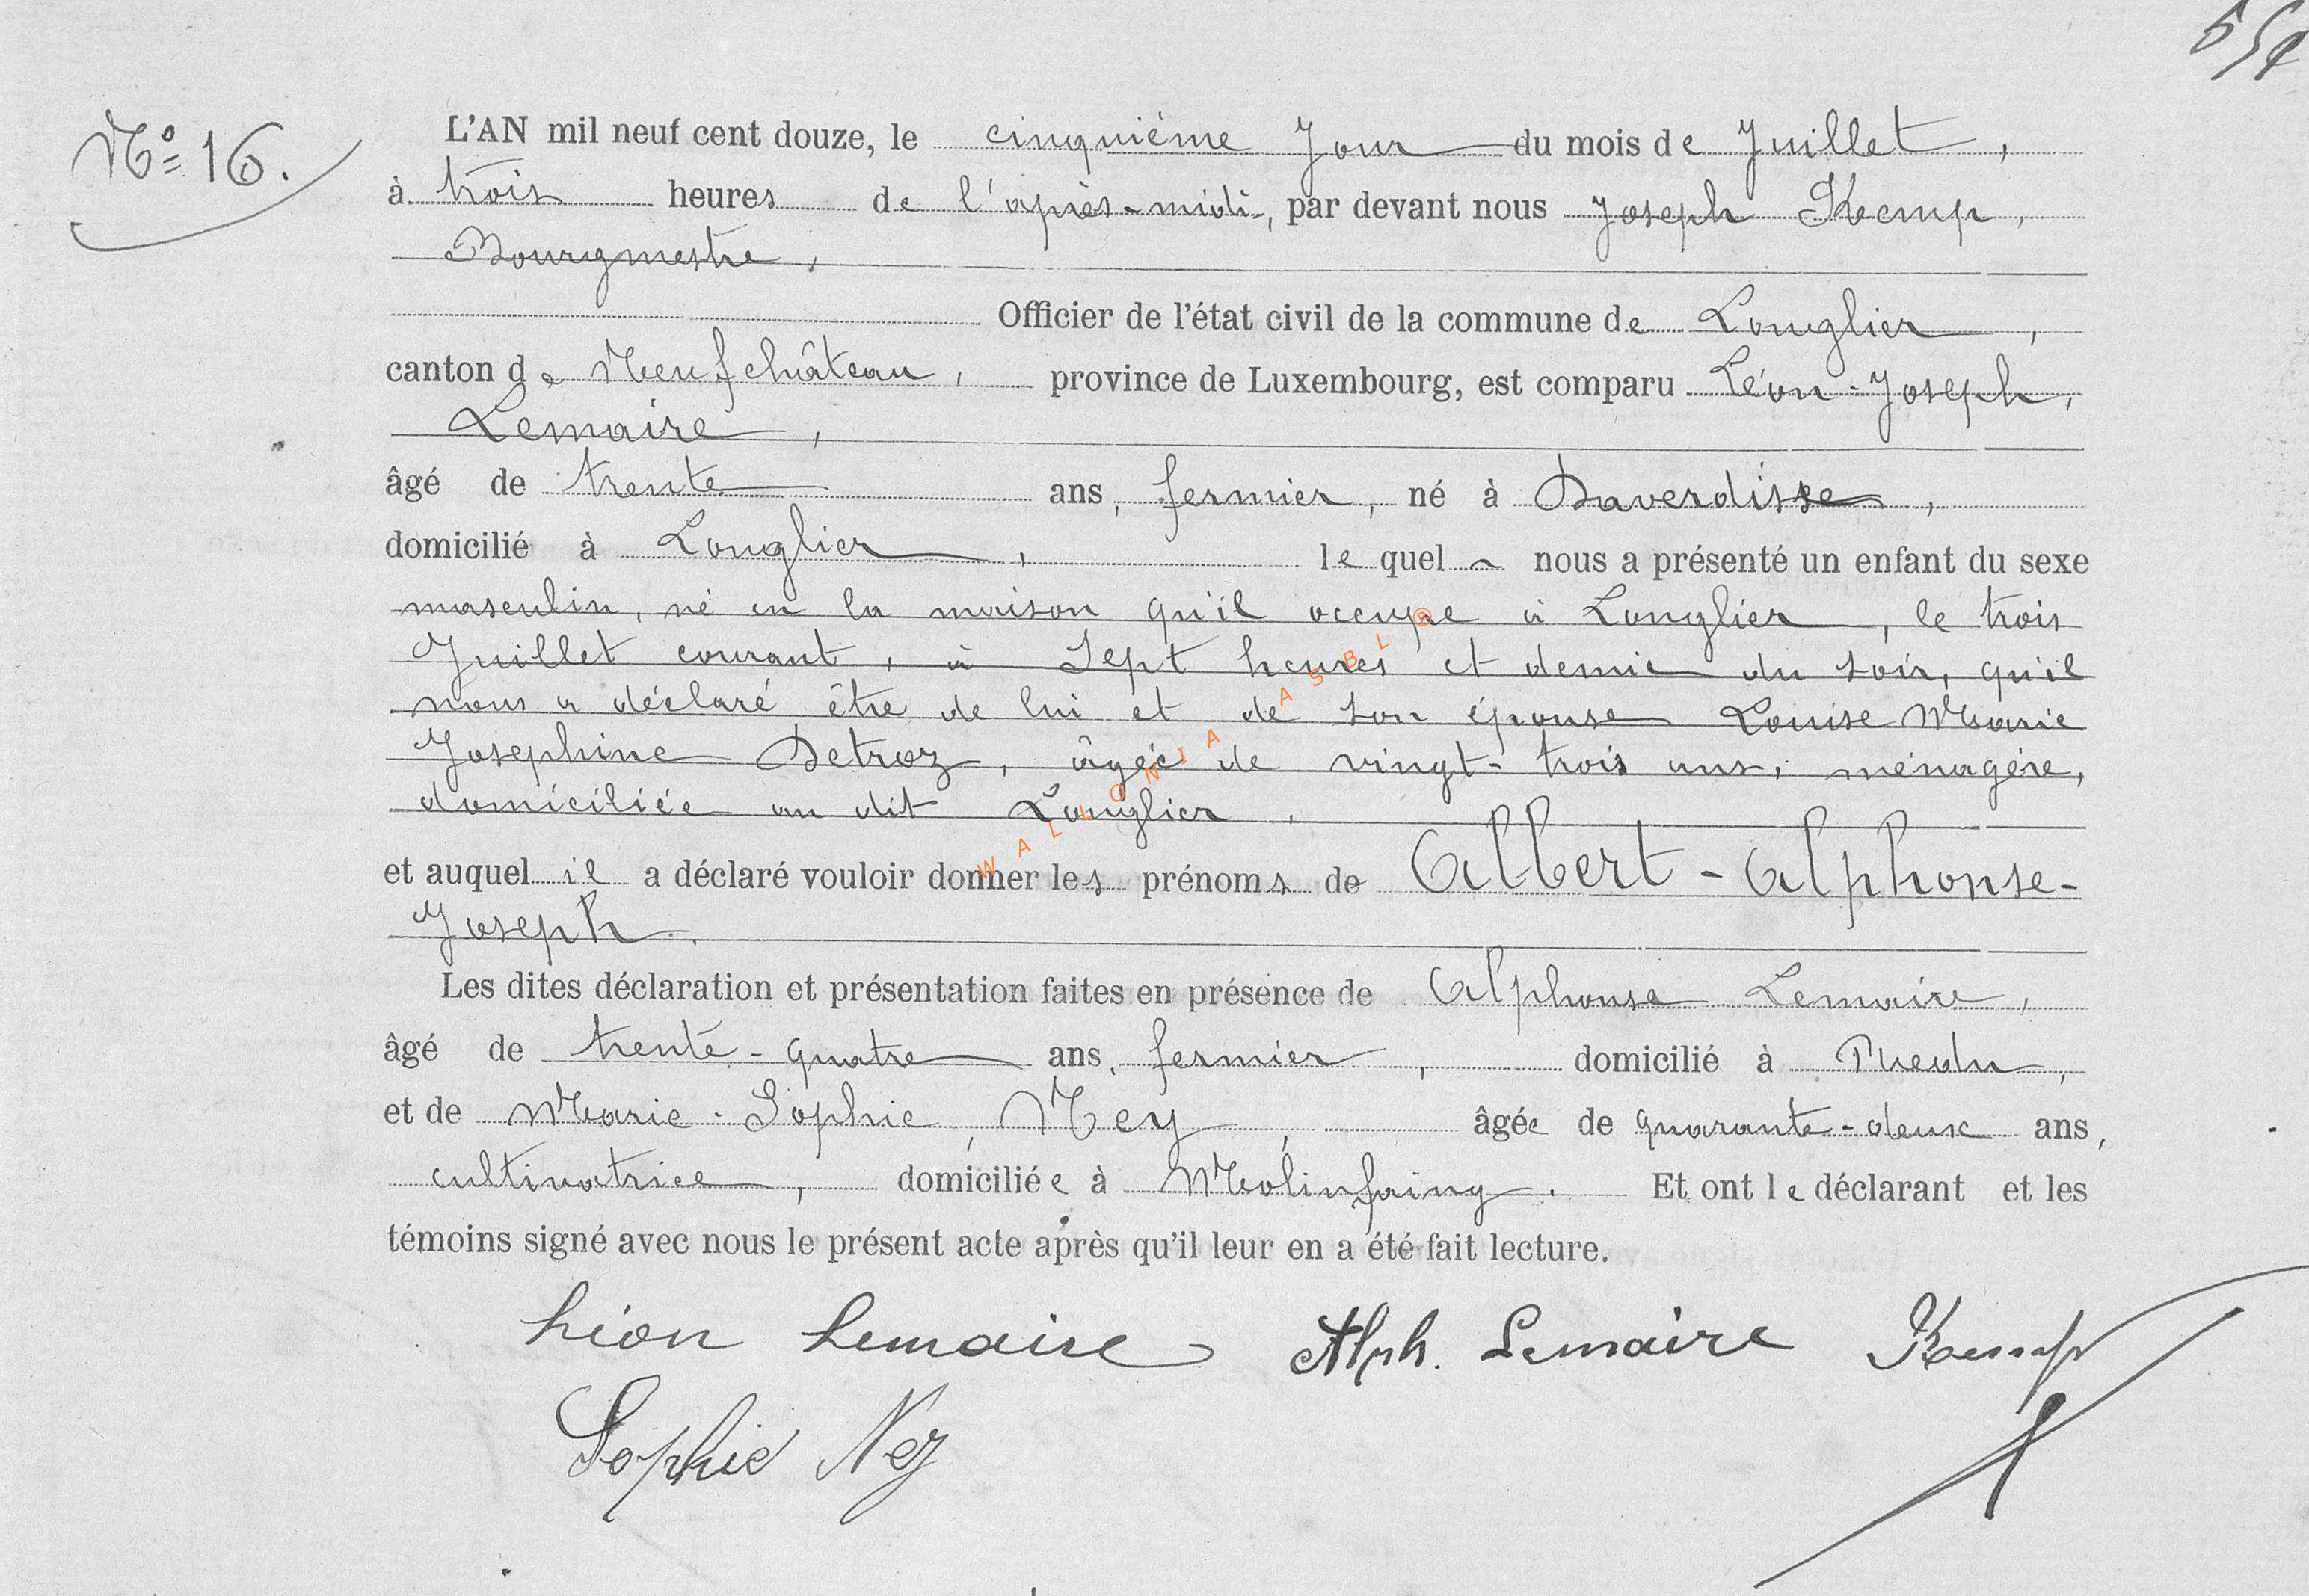 N° 16.
L'AN mil neuf cent douze, le cinquième Jour du mois de Juillet,
à trois heures de l'après-midi, par devant nous Joseph Kemp,
Bourgmestre,
Officier de l'état civil de la commune de Longlier,
canton de Neufchâteau, province de Luxembourg, est comparu Léon-Joseph,
Lemaire,
âgé de trente ans, fermier, né à Daverdisse,
domicilié à Longlier, le quel nous a présenté un enfant du sexe
masculin, né en la maison qu'il occupe à Longlier, le trois
Juillet courant, à Sept heures et demie du soir, qu'il
nous a déclaré être de lui et de son épouse Louise Marie
Josephine Detroz, âgée de vingt-trois ans, ménagère,
domiciliée au dit Longlier,
et auquel il a déclaré vouloir donner les prénoms de Albert-Alphonse-
Joseph.
Les dites déclaration et présentation faites en présence de Alphonse Lemaire,
âgé de trente-quatre ans, fermier, domicilié à
et de Marie-Sophie, Ney, âgée de quarante-deux ans,
cultivatrice, domiciliée à Molinfaing. Et ont le déclarant et les
témoins signé avec nous le présent acte après qu'il leur en a été fait lecture.
Léon Lemaire Alph. Lemaire Kemp
Sophie Ney
WALLONIA ASBL ®